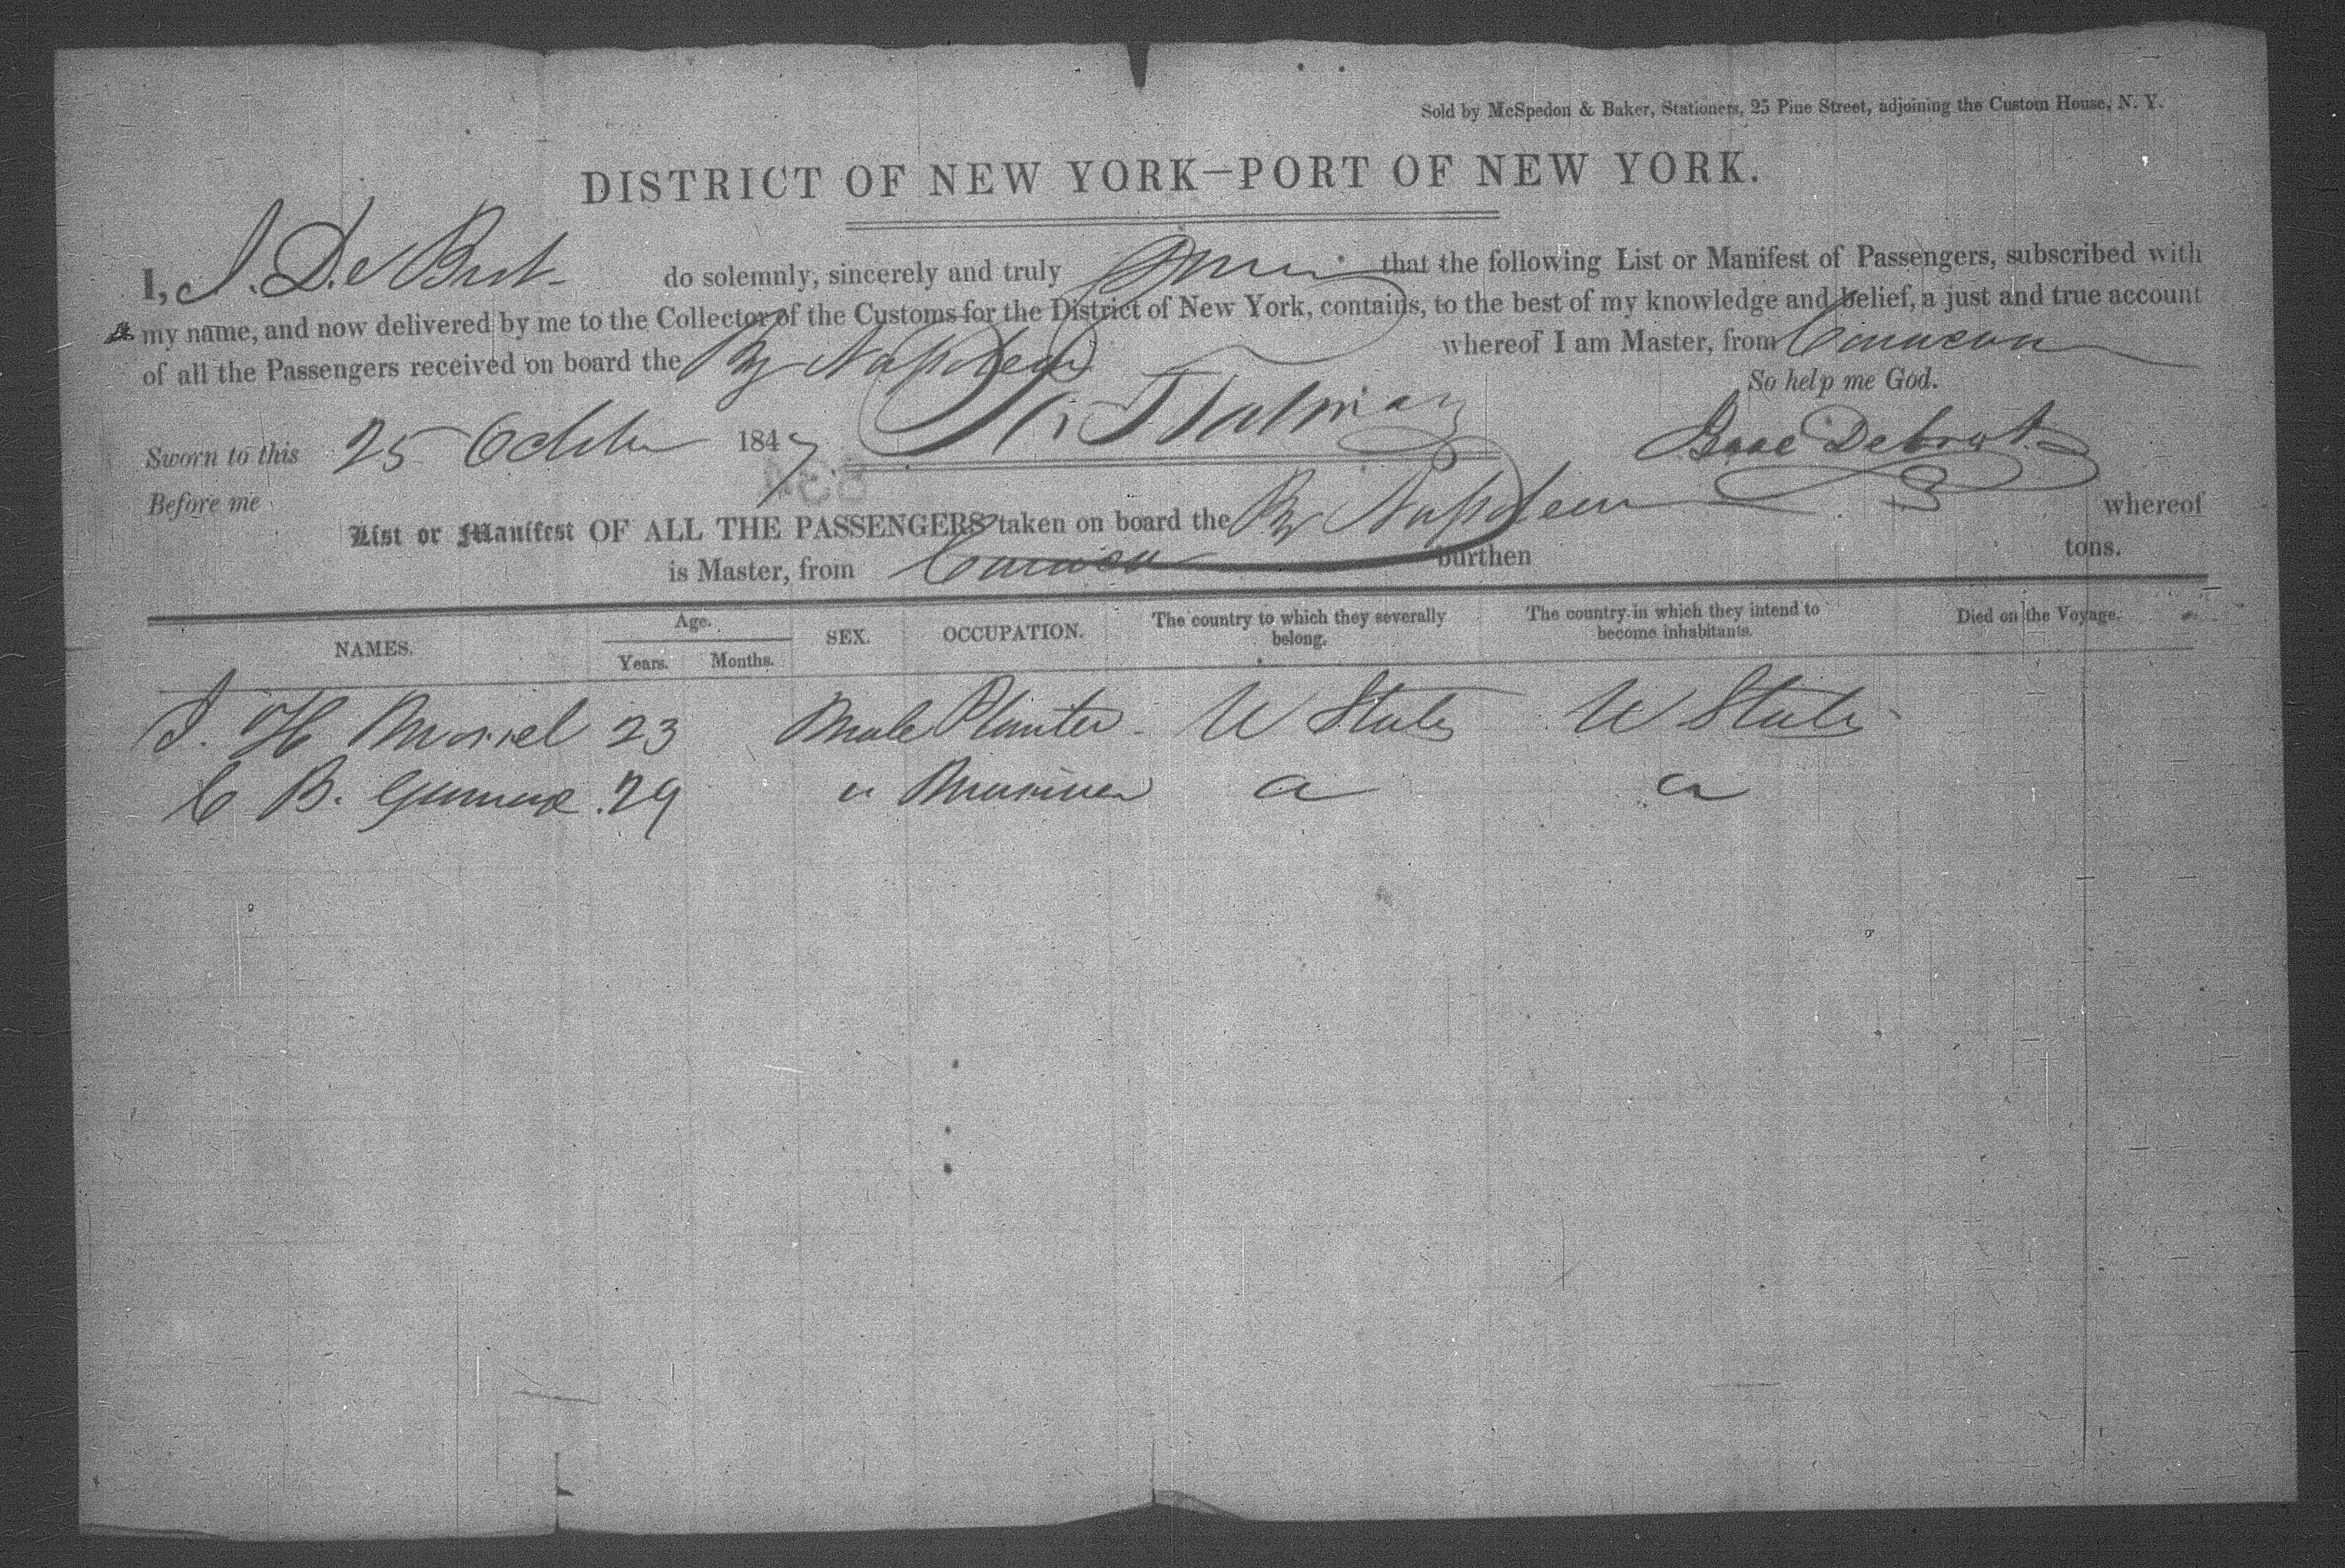 Sold by McSpedon & Baker, Stationers, 25 Pine Street, adjoining the Custom House, N. Y.
DISTRICT OF NEW YORK—PORT OF NEW YORK.
I, J. De Brot do solemnly, sincerely and truly swear that the following List or Manifest of Passengers, subscribed with
my name, and now delivered by me to the Collector of the Customs for the District of New York, contains, to the best of my knowledge and belief, a just and true account
of all the Passengers received on board the Bg Napoleon whereof I am Master, from Curacoa
So help me God.
Sworn to this 25 October 1847
Debrot
Before me
List or Manifest OF ALL THE PASSENGERS taken on board the Bg Napoleon whereof
is Master, from Curacoa burthen tons.
NAMES. Age. Years. Months. SEX. OCCUPATION. The country to which they severally belong. The country in which they intend to become inhabitants. Died on the Voyage.
J. H. Morrel 23 Male Planter U States U States
C B. 29 " Mariner " "